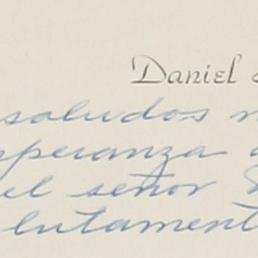 Daniel
saludos
esperanza
el señor
lutament